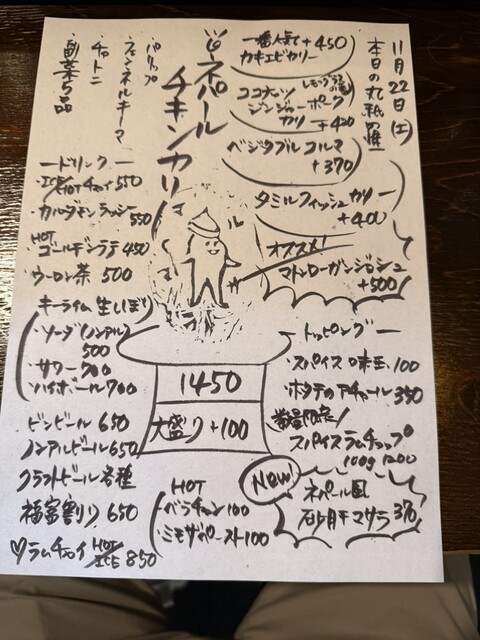 11月22日(土)
本日の
一番人気で +450
カキエビカリー
レモングラスの香り
ココナッツ
ジンジャーポーク
カリー
+420
ベジタブルコルマ
+370
タミルフィッシュカリー
+400
オススメ!
マトンローガンジョシュ
+500
ネパール
チキンカリー
パリップ
フェンネルキーマ
チャトニ
副菜5品
ードリンクー
ICE/HOTチャイ 550
・カルダモンラッシー
550
HOT
・ゴールデンラテ 450
・ウーロン茶 500
キーライム生しぼり
・ソーダ(ノンアル)
500
・サワー 700
・ハイボール 700
・ビンビール 650
・ノンアルビール 650
・クラフトビール各種
・福富割り 650
♡ラムチャイ HOT/ICE 850
1450
大盛り +100
HOT
・ベラチャン 100
・ミモザペースト 100
ートッピングー
・スパイス味玉 100
・ホタテのアチャール 350
数量限定!
スパイスラムチョップ
100g 1200
New!
ネパール風
砂肝マサラ 370